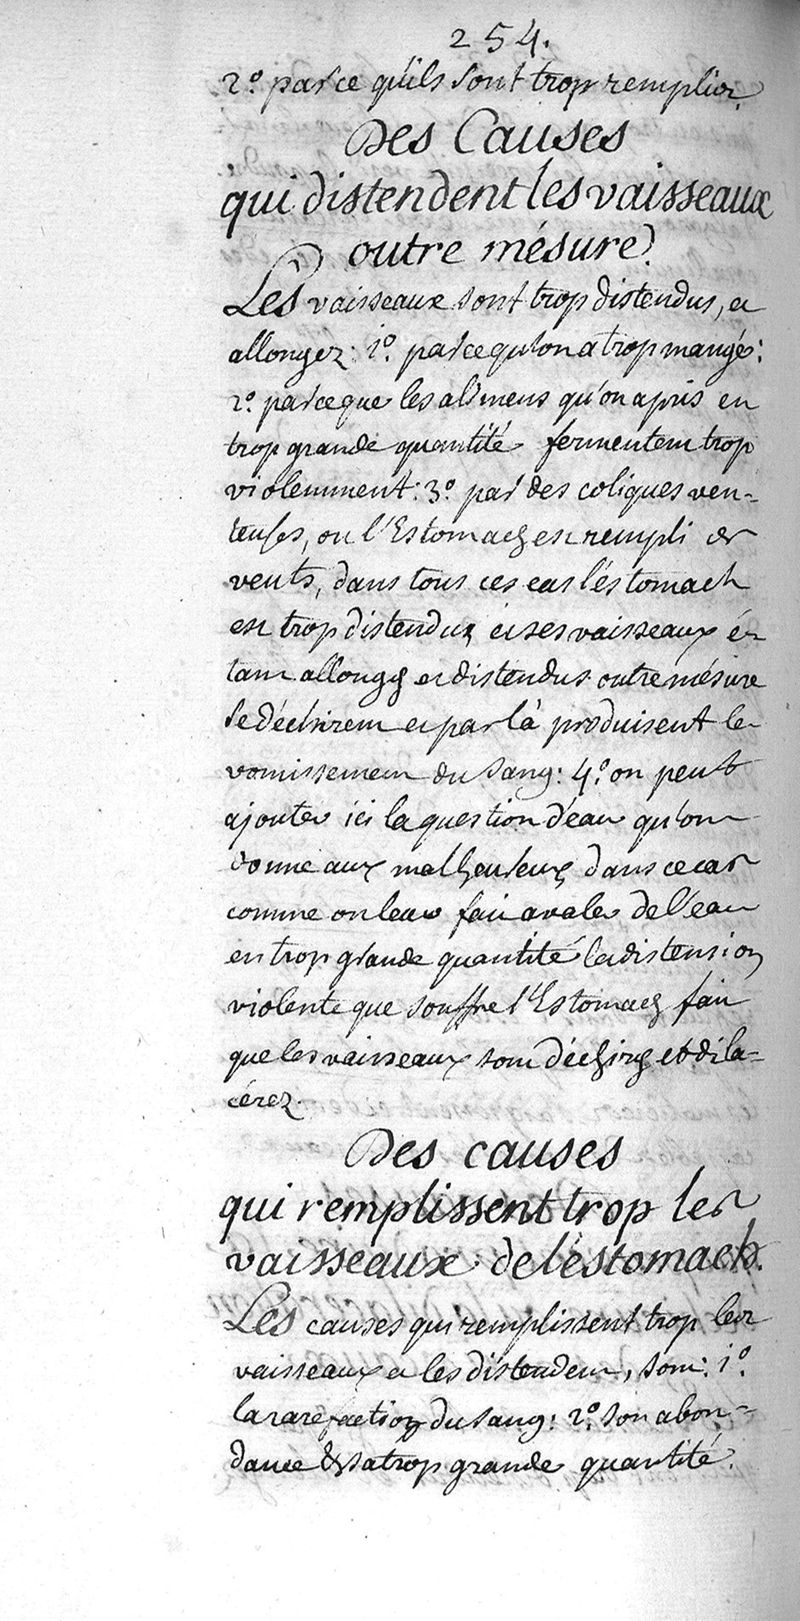 254.
2.º parce qu'ils sont trop remplis.
Des Causes
qui distendent les vaisseaux
outre mésure.
Les vaisseaux sont trop distendus, et
allongez: 1.º parcequ'on a trop mangé:
2.º parceque les alimens qu'on a pris en
trop grande quantité fermentent trop
violemment: 3.º par des coliques ven-
teuses, ou l'Estomach est rempli de
vents, dans tous ces cas l'éstomach
est trop distendu, et ses vaisseaux é-
tant allongés et distendus outre mésure
se déchirent et par là produisent le
vomissement du sang: 4.º on peut
ajouter ici la question d'eau qu'on
donne aux malheureux dans ce cas
comme on leur fait avaler de l'eau
en trop grande quantité la distension
violente que souffre l'Estomach fait
que les vaisseaux sont déchirés et dila-
cérez.
Des causes
qui remplissent trop les
vaisseaux de l'éstomach.
Les causes qui remplissent trop les
vaisseaux et les distendent, sont: 1.º
la rarefaction du sang: 2.º son abon-
dance & sa trop grande quantité.